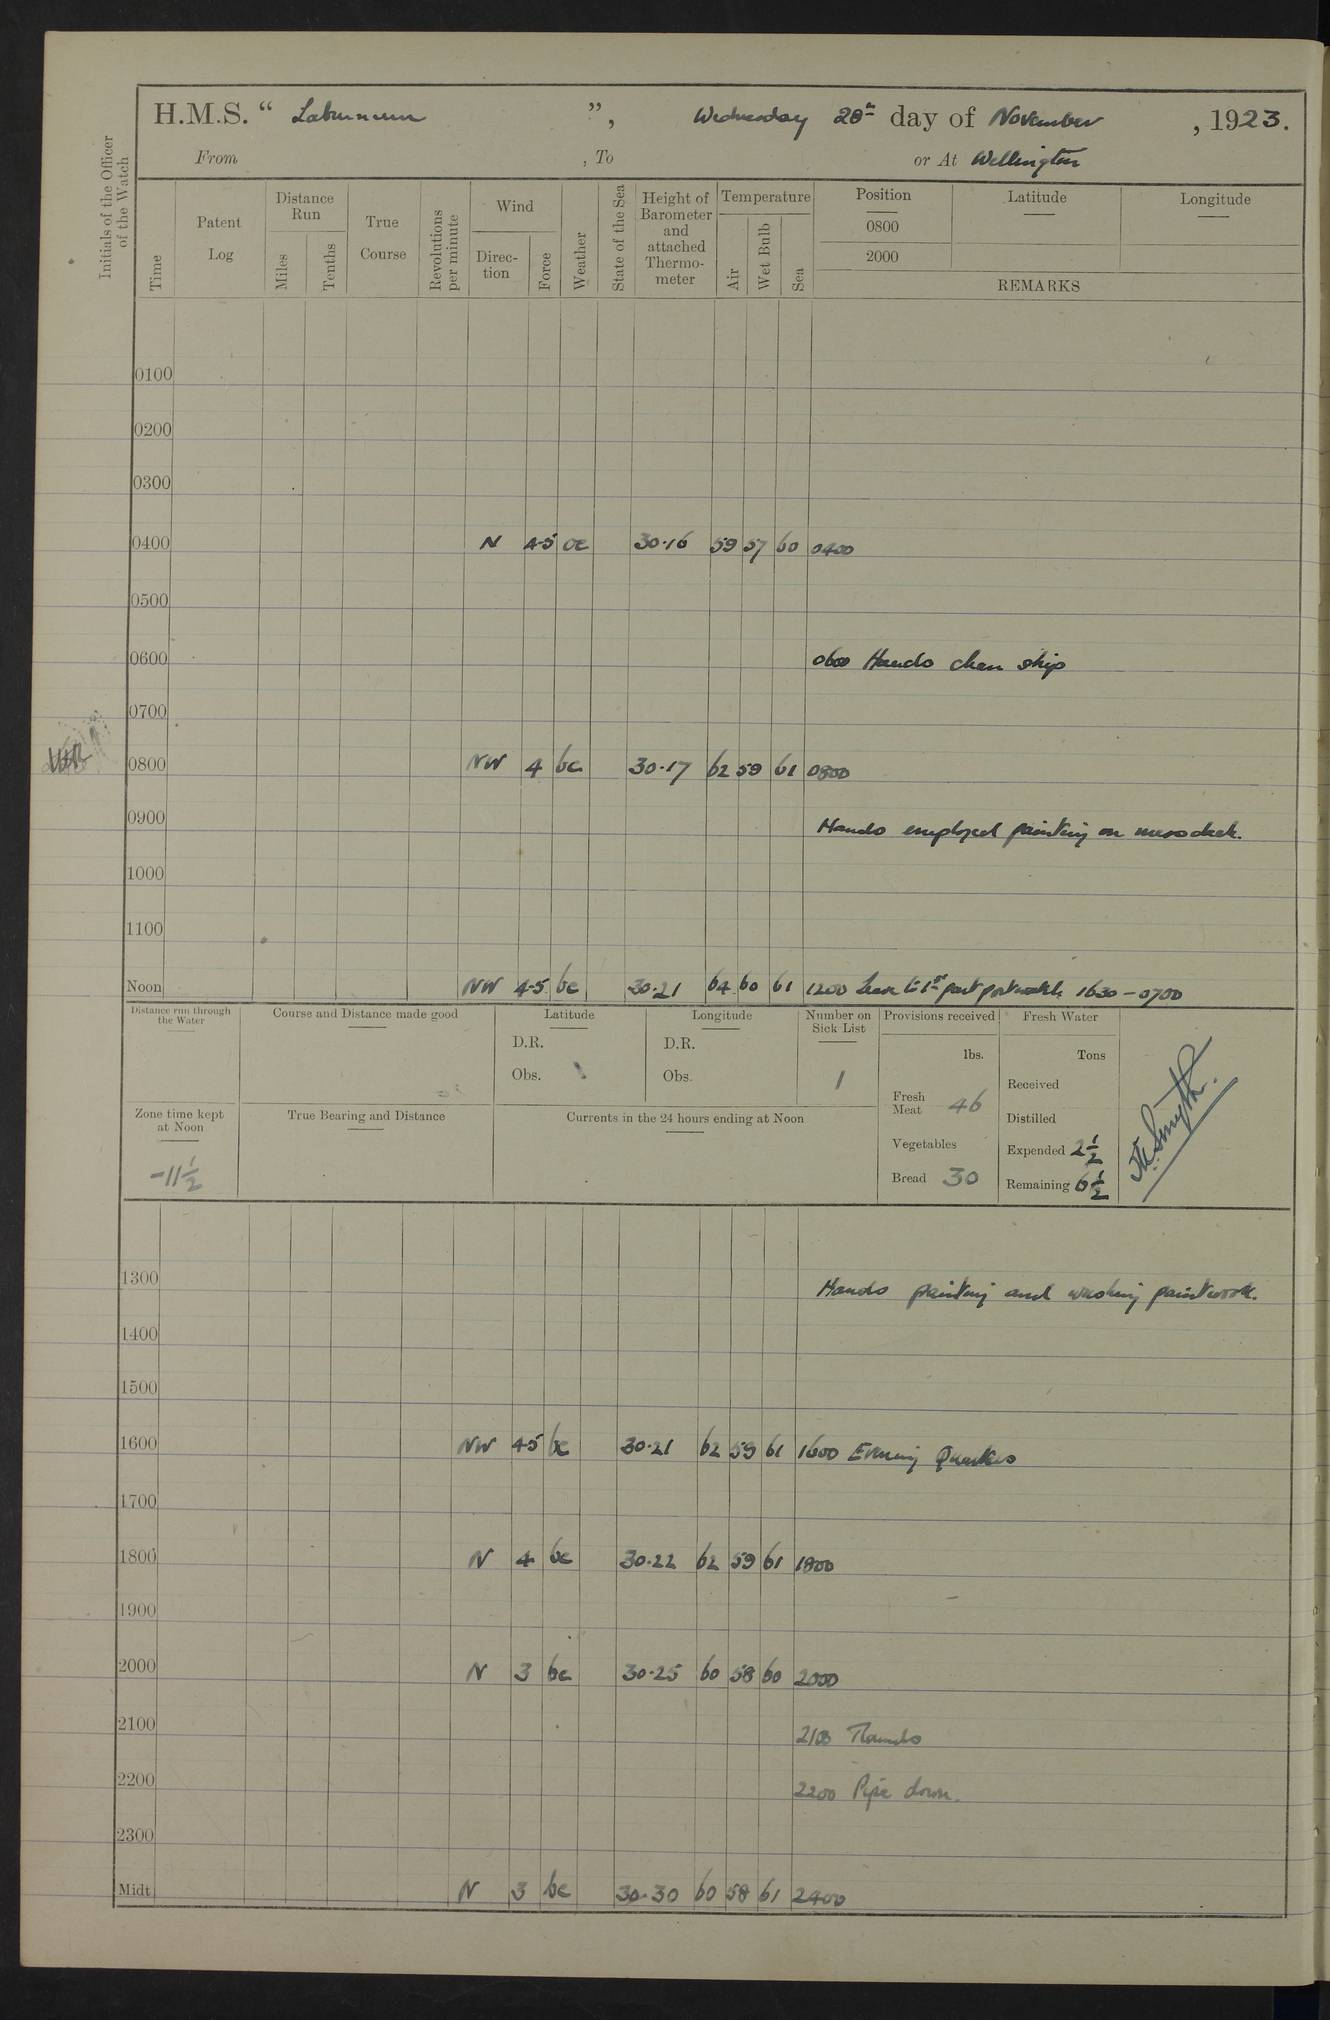 H.M.S. “ Laburnum ”, Wednesday 28th day of November, 1923.
From , To or At Wellington
Initials of the Officer of the Watch
Time
Patent Log
Distance Run
Miles
Tenths
True Course
Revolutions per minute
Wind
Direction
Force
Weather
State of the Sea
Height of Barometer and attached Thermometer
Temperature
Air
Wet Bulb
Sea
Position Latitude Longitude
0800
2000
REMARKS
0100
0200
0300
0400 N 4-5 bc 30.16 59 57 60 0400
0500
0600 0600 Hands clean ship
0700
0800 NW 4 bc 30.17 62 59 61 0800
0900 Hands employed painting on messdeck.
1000
1100
Noon NW 4-5 bc 30.21 64 60 61 1200 Leave to 1st part port watch 1630 – 0700
Distance run through the Water
Course and Distance made good
Latitude
D.R.
Obs.
Longitude
D.R.
Obs.
Number on Sick List
1
Provisions received
lbs.
Fresh Meat 46
Vegetables
Bread 30
Fresh Water
Tons
Received
Distilled
Expended 2½
Remaining 6½
Zone time kept at Noon
-11½
True Bearing and Distance
Currents in the 24 hours ending at Noon
Smyth.
1300 Hands painting and washing paintwork.
1400
1500
1600 NW 4-5 bc 30.21 62 59 61 1600 Evening Quarters
1700
1800 N 4 bc 30.22 62 59 61 1800
1900
2000 N 3 bc 30.25 60 58 60 2000
2100 Rounds
2200 2200 Pipe down.
2300
Midt N 3 bc 30.30 60 58 61 2400